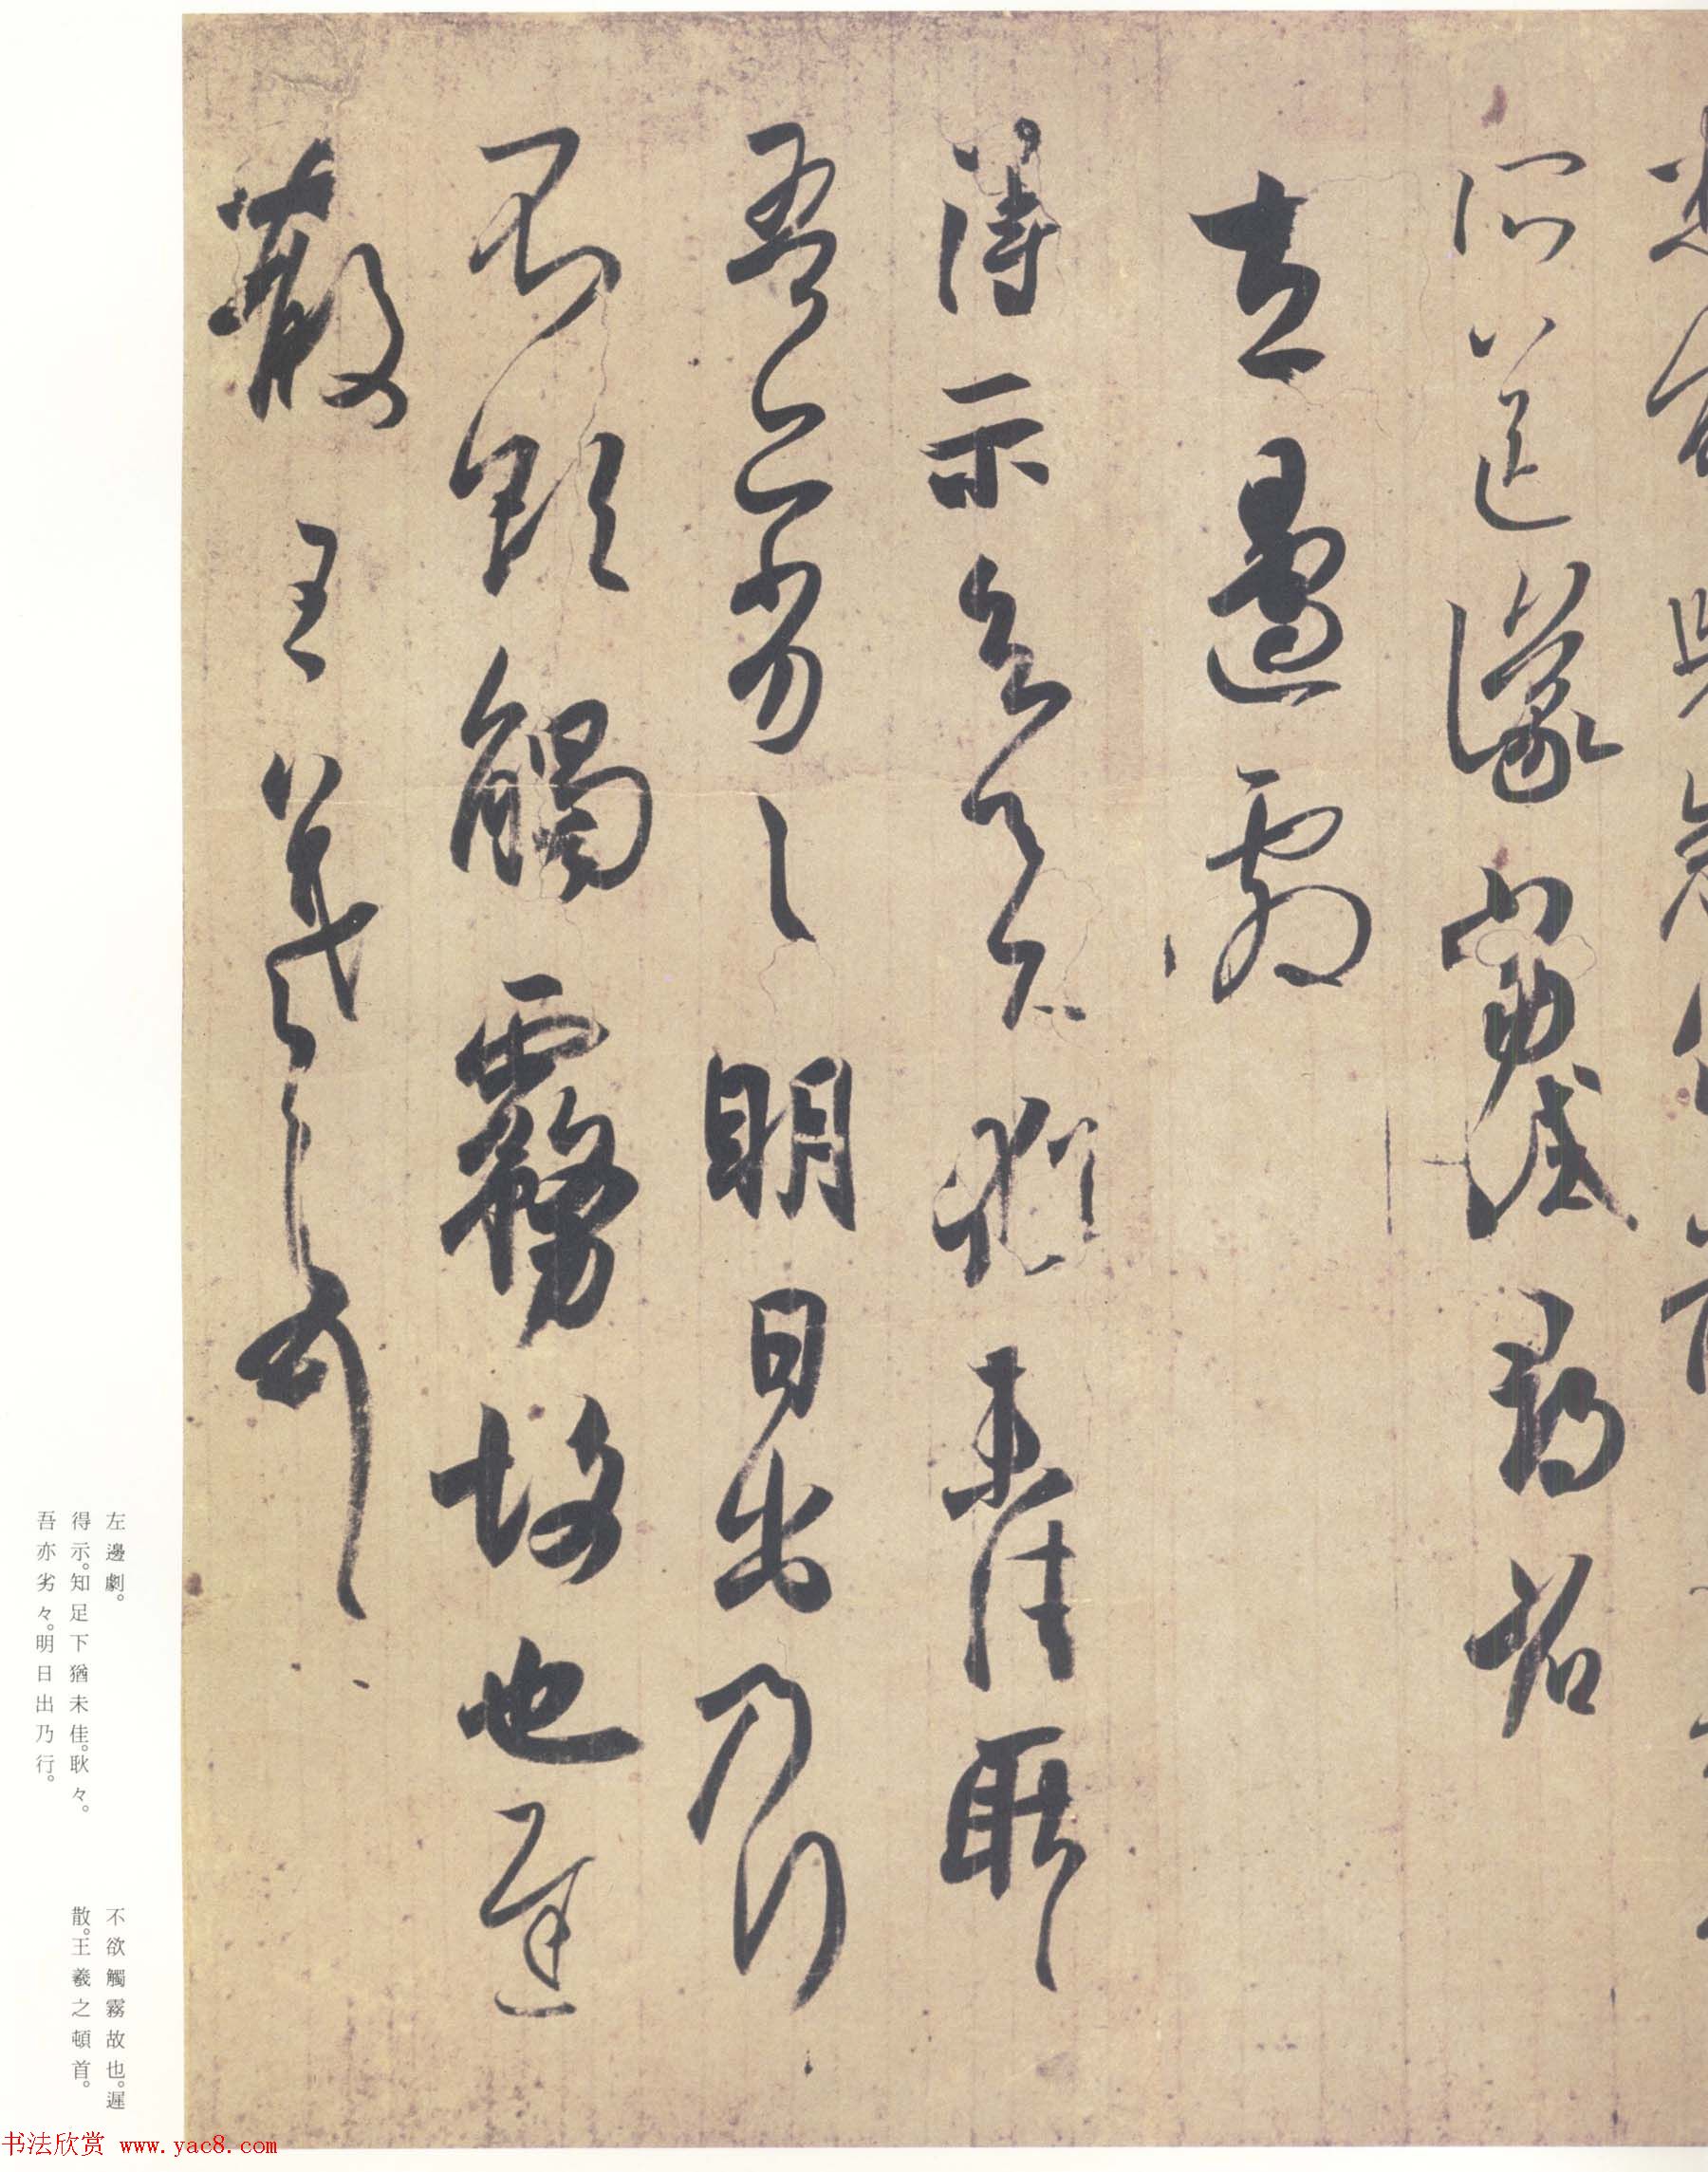 所送議當試尋省
左邊劇
得示知足下猶未佳耿々
吾亦劣々明日出乃行
不欲觸霧故也遲
散王羲之頓首
左邊劇。
得示。知足下猶未佳。耿々。
吾亦劣々。明日出乃行。
不欲觸霧故也。遲
散。王羲之頓首。
书法欣赏 www.yac8.com